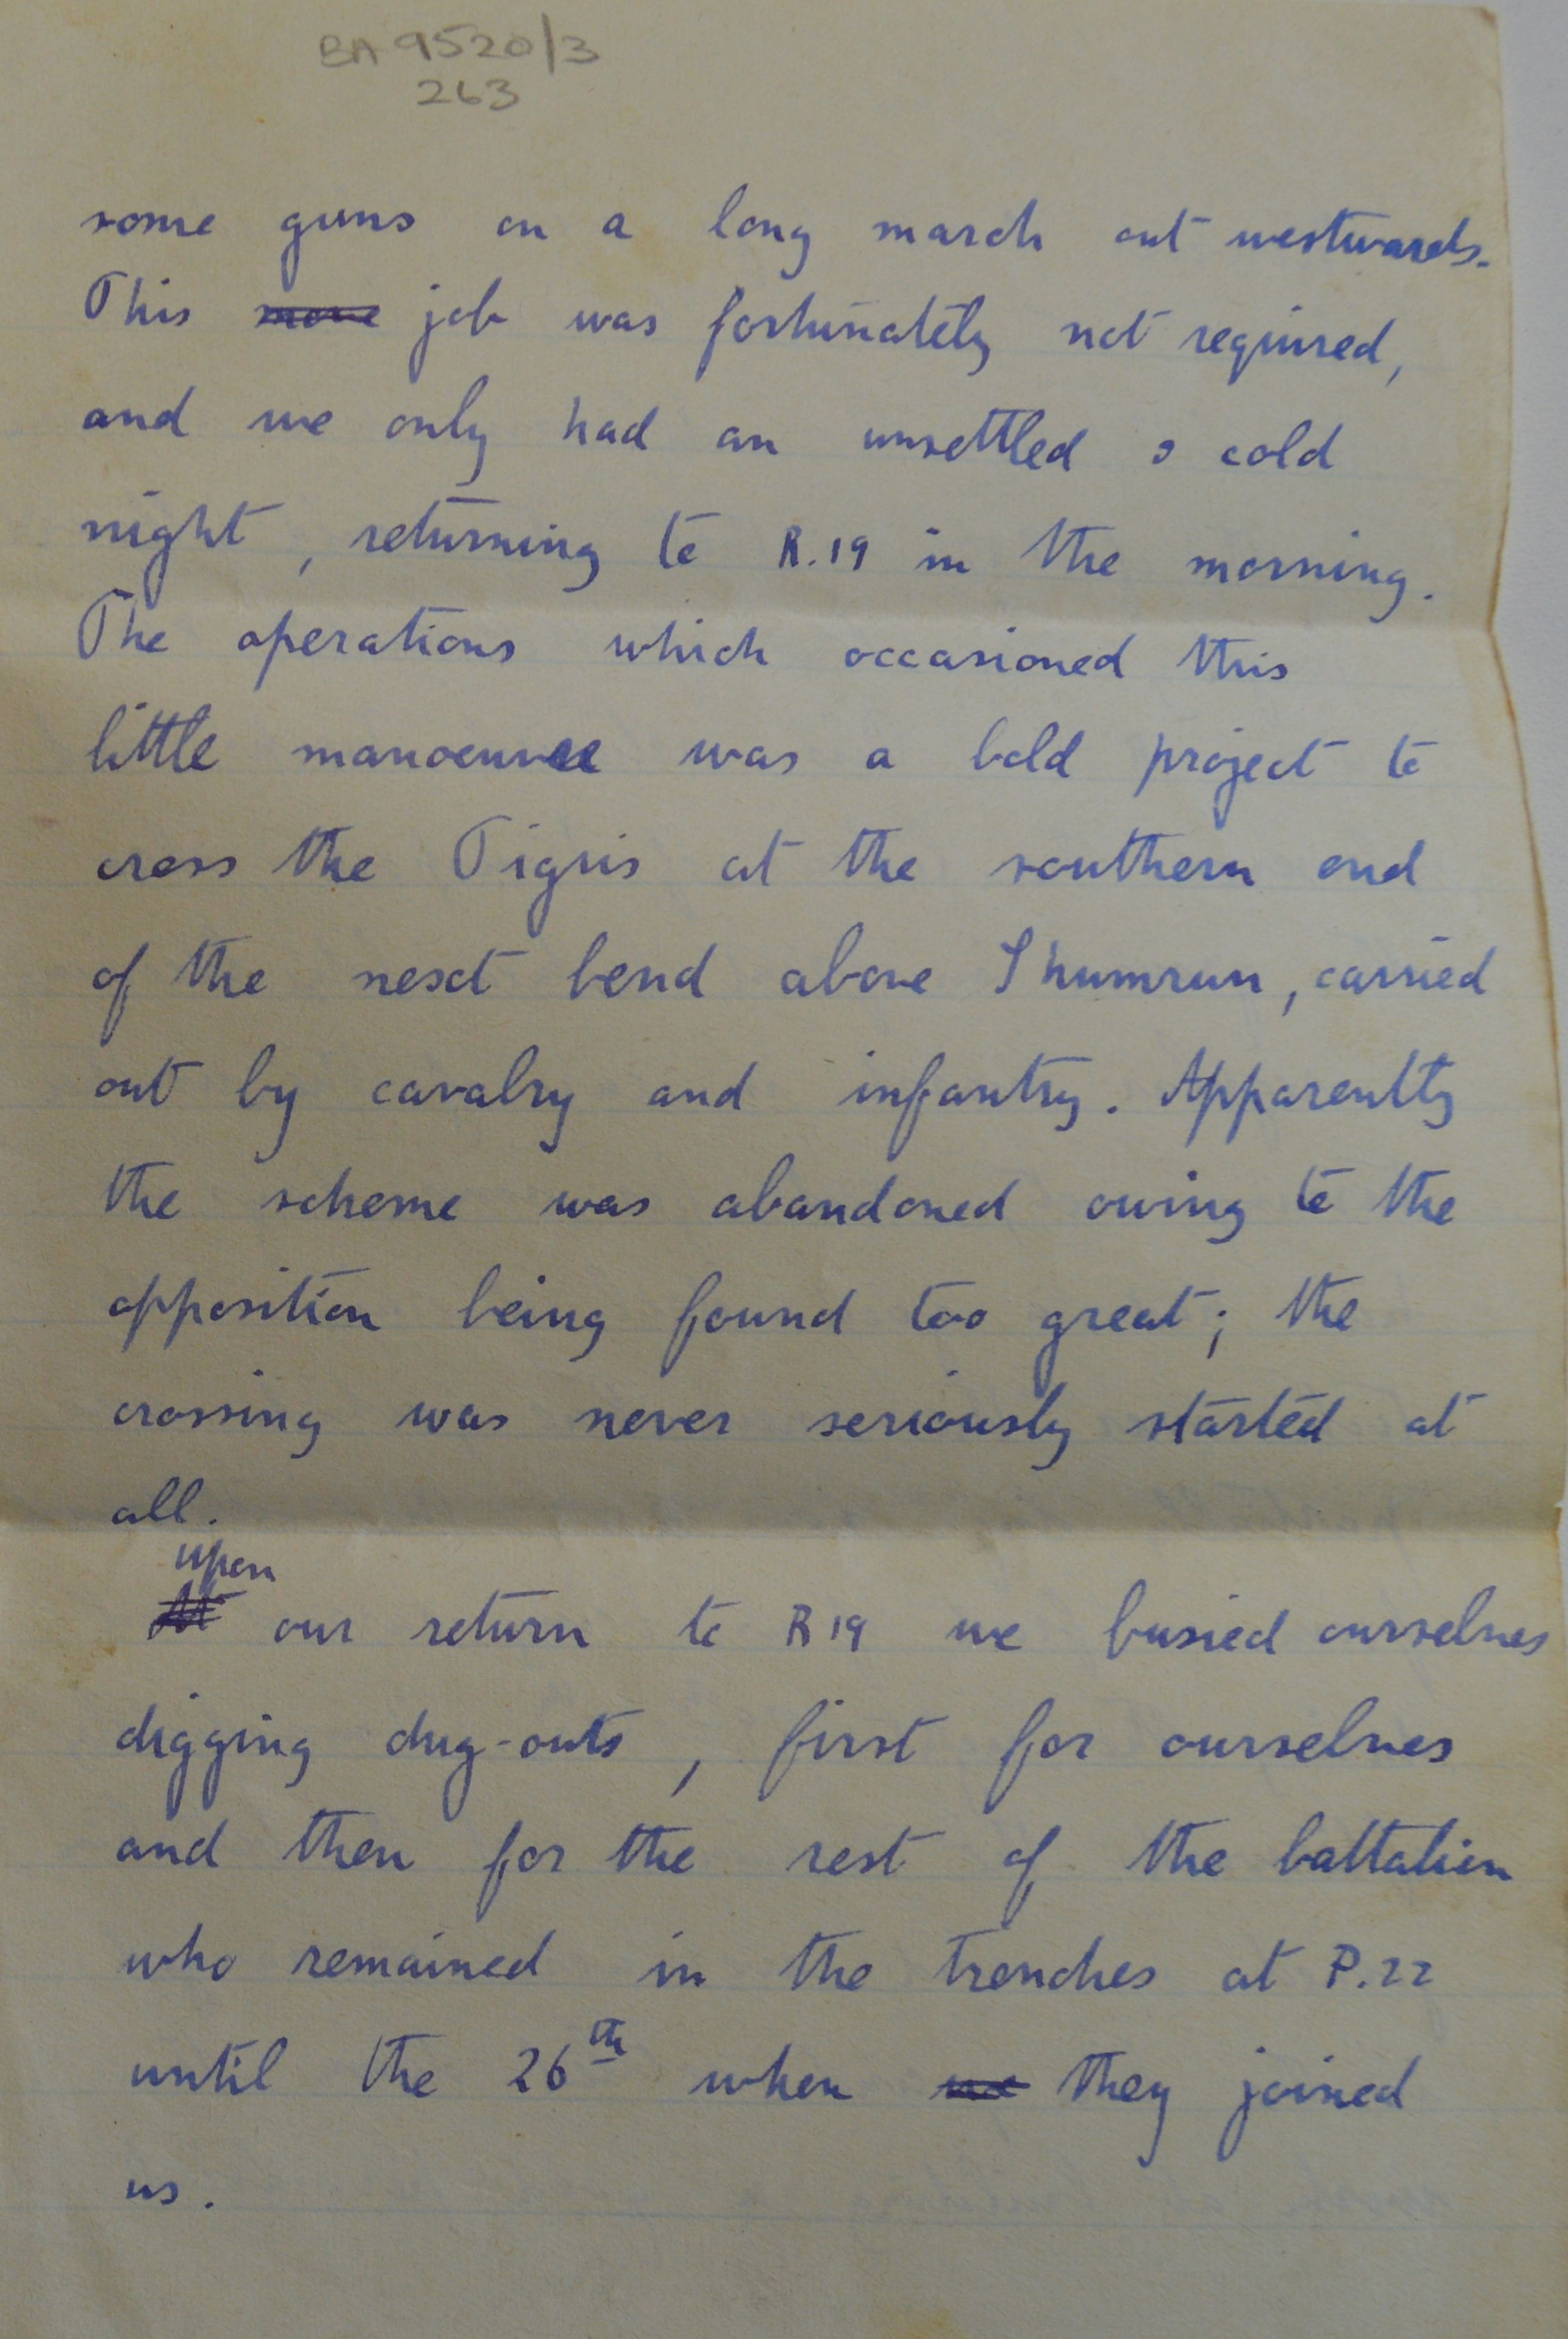 BA 9520/3
263
some guns on a long march out westwards.
This move job was fortunately not required,
and we only had an unsettled & cold
night, returning to R.19 in the morning.
The operations which occasioned this
little manoeuvre was a bold project to
cross the Tigris at the southern end
of the next bend above Shumrun, carried
out by cavalry and infantry. Apparently
the scheme was abandoned owing to the
opposition being found too great; the
crossing was never seriously started at
all.
upon
At our return to R19 we busied ourselves
digging dug-outs, first for ourselves
and then for the rest of the battalion
who remained in the trenches at P.22
until the 26th when we they joined
us.